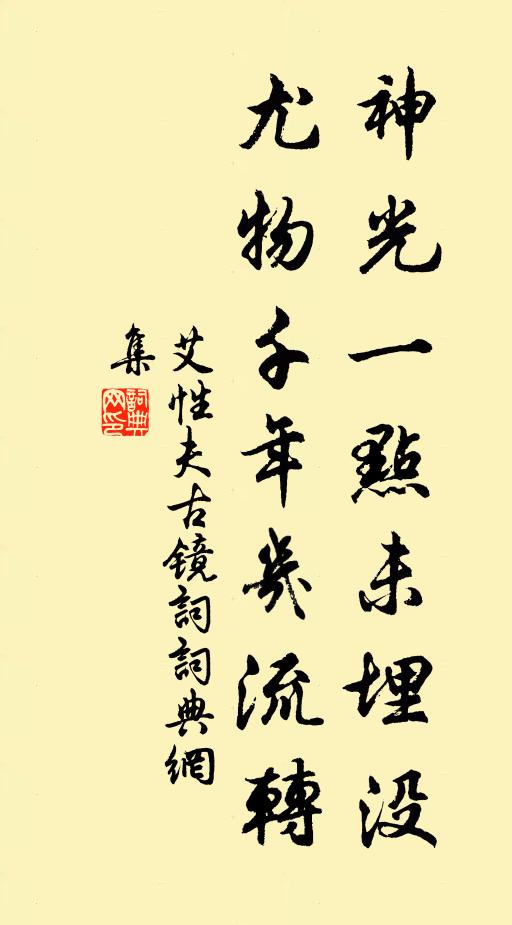 神光一點未埋没
尤物千年幾流轉
艾性夫古鏡詞詞典網
集
詞典
网印